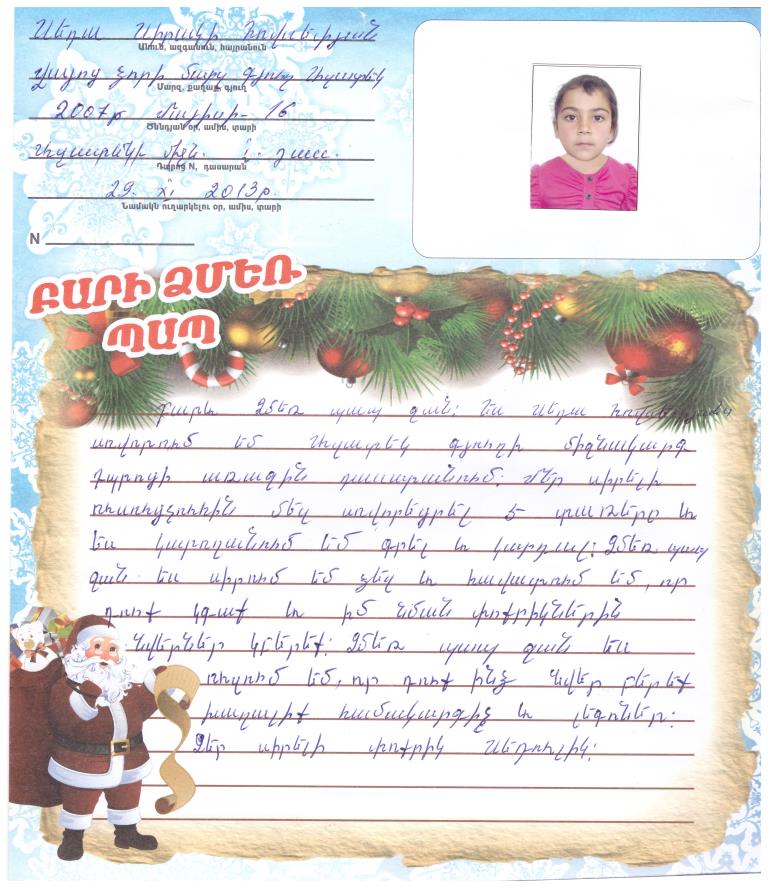 Սեդա Արայի Հովսեփյան
Անուն, ազգանուն, հայրանուն
Վայոց ձորի մարզ գյուղ
Մարզ, քաղաք, գյուղ
2007թ մայիսի - 16
Ծննդյան օր, ամիս, տարի
միջն. դաս.
Դպրոց N, դասարան
29. XI 2013թ.
Նամակն ուղարկելու օր, ամիս, տարի
N
ԲԱՐԻ ՁՄԵՌ
ՊԱՊ
Բարև Ձմեռ պապ ջան: Ես Սեդա Հովսեփյանս
սովորում եմ գյուղի միջնակարգ
դպրոցի առաջին դասարանում: Մեր սիրելի
ուսուցչուհին մեզ սովորեցրել 5 տառերը և
ես կարողանում եմ գրել և կարդալ: Ձմեռ պապ
ջան ես սիրում եմ ձեզ և հավատում եմ, որ
դուք կգաք և իմ նման փոքրիկներին
նվերներ կբերեք: Ձմեռ պապ ջան ես
ուզում եմ, որ դուք ինձ նվեր բերեք
խաղալիք համակարգիչ և լեգոներ:
Ձեր սիրելի փոքրիկ Սեդուլիկ: